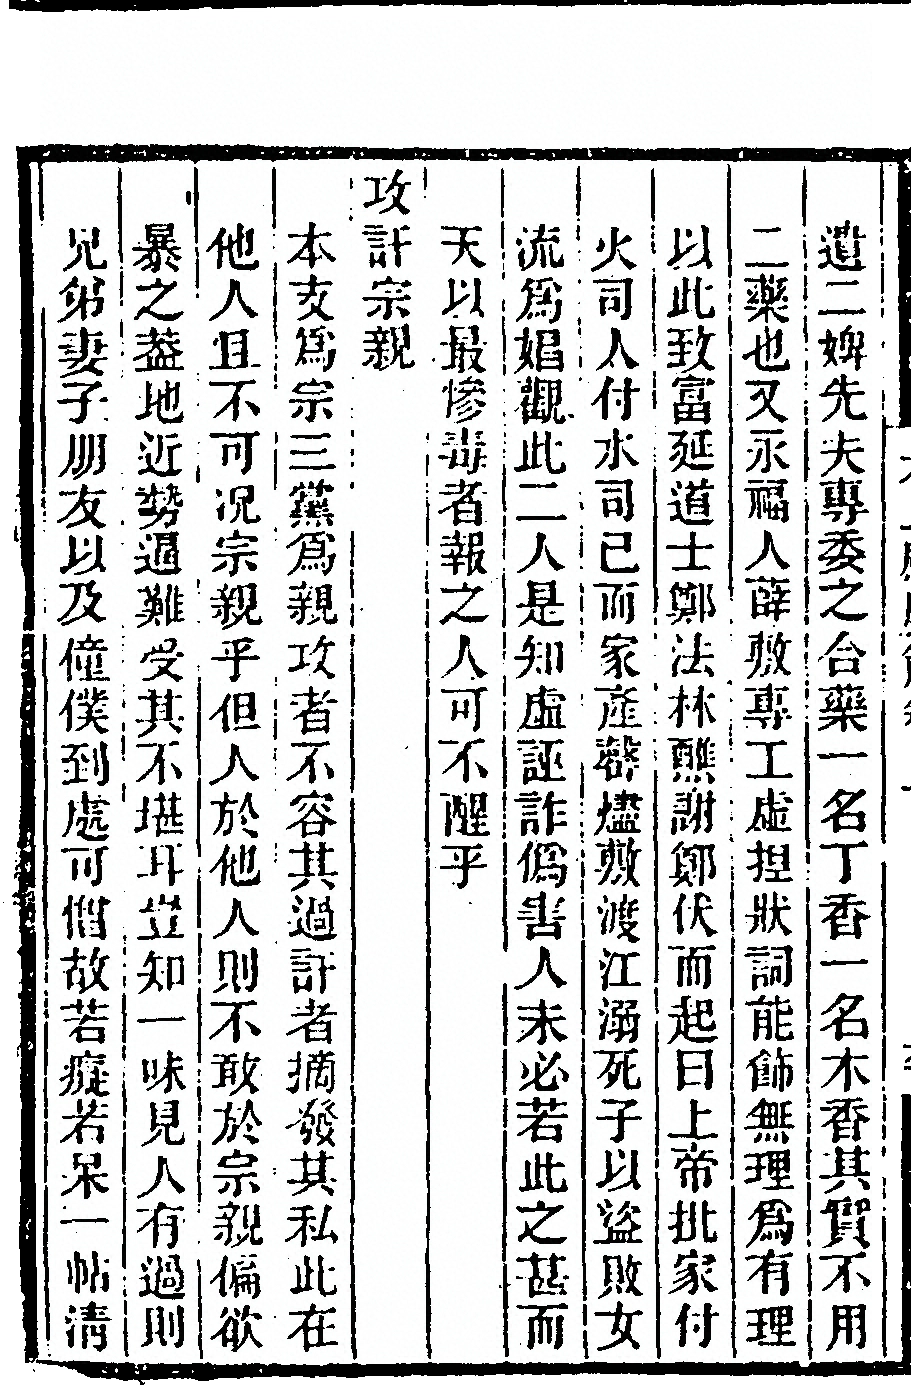 遺二婢先夫專委之合藥一名丁香一名木香其實不用
二藥也又永福人薛敷專工虛捏狀詞能飾無理爲有理
以此致富延道士鄭法林醮謝鄭伏而起曰上帝批家付
火司人付水司已而家產罄燼敷渡江溺死子以盜敗女
流爲娼觀此二人是知虛誣詐僞害人未必若此之甚而
天以最慘毒者報之人可不醒乎
攻訐宗親
本支爲宗三黨爲親攻者不容其過訐者摘發其私此在
他人且不可况宗親乎但人於他人則不敢於宗親偏欲
暴之葢地近勢逼難受其不堪耳豈知一味見人有過則
兄弟妻子朋友以及僮僕到處可憎故若癡若呆一帖清